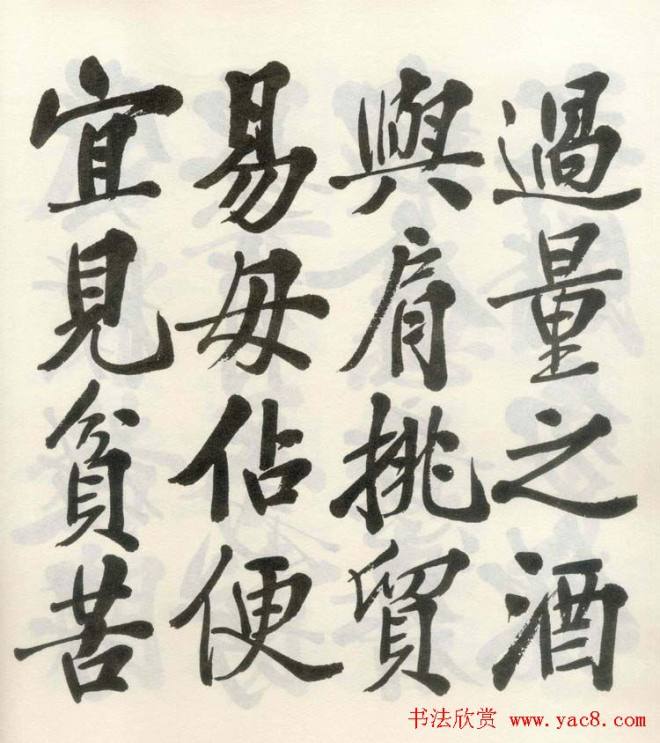 過量之酒
與肩挑貿
易毋佔便
宜見貧苦
书法欣赏 www.yac8.com